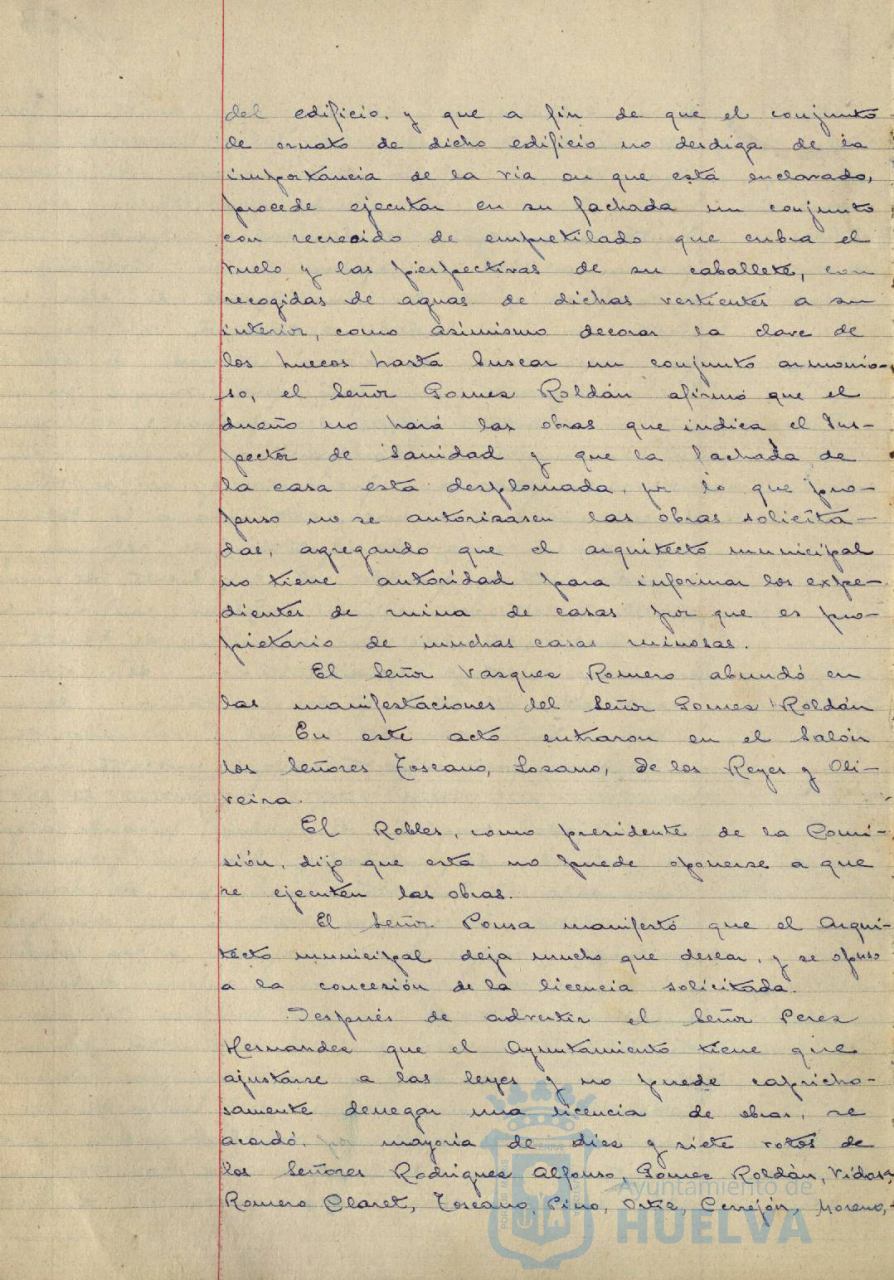 del edificio, y que a fin de que el conjunto
de ornato de dicho edificio no desdiga de la
importancia de la vía en que está enclavado,
procede ejecutar en su fachada un conjunto
con recrecido de empretilado que cubra el
vuelo y las perpectivas de su caballete, con
recogidas de aguas de dichas vertientes a su
interior, como asimismo decorar la clave de
los huecos hasta buscar un conjunto armonio-
so, el Señor Gomez Roldán afirmó que el
dueño no hará las obras que indica el Ins-
pector de Sanidad y que la fachada de
la casa está desplomada, por lo que pro-
puso no se autorizasen las obras solicita-
das, agregando que el arquitecto municipal
no tiene autoridad para informar los expe-
dientes de ruina de casas por que es pro-
pietario de muchas casas ruinosas.
El Señor Vazquez Romero abundó en
las manifestaciones del Señor Gomez Roldán
En este acto entraron en el Salón
los Señores Toscano, Lozano, de los Reyes y Oli-
veira.
El Robles, como presidente de la Comi-
sión, dijo que esta no puede oponerse a que
se ejecuten las obras.
El Señor Ponsa manifestó que el Arqui-
tecto municipal deja mucho que desear, y se opuso
a la concesión de la licencia solicitada.
Después de advertir el Señor Perez
Hernandez que el Ayuntamiento tiene que
ajustarse a las leyes y no puede capricho-
samente denegar una licencia de obras, se
acordó, por mayoría de diez y siete votos de
los Señores Rodriguez Alfonso, Gomez Roldán, Vidosa,
Romero Claret, Toscano, Pino, Ortiz, Cerrejón, Moreno,
Ayuntamiento de
HUELVA